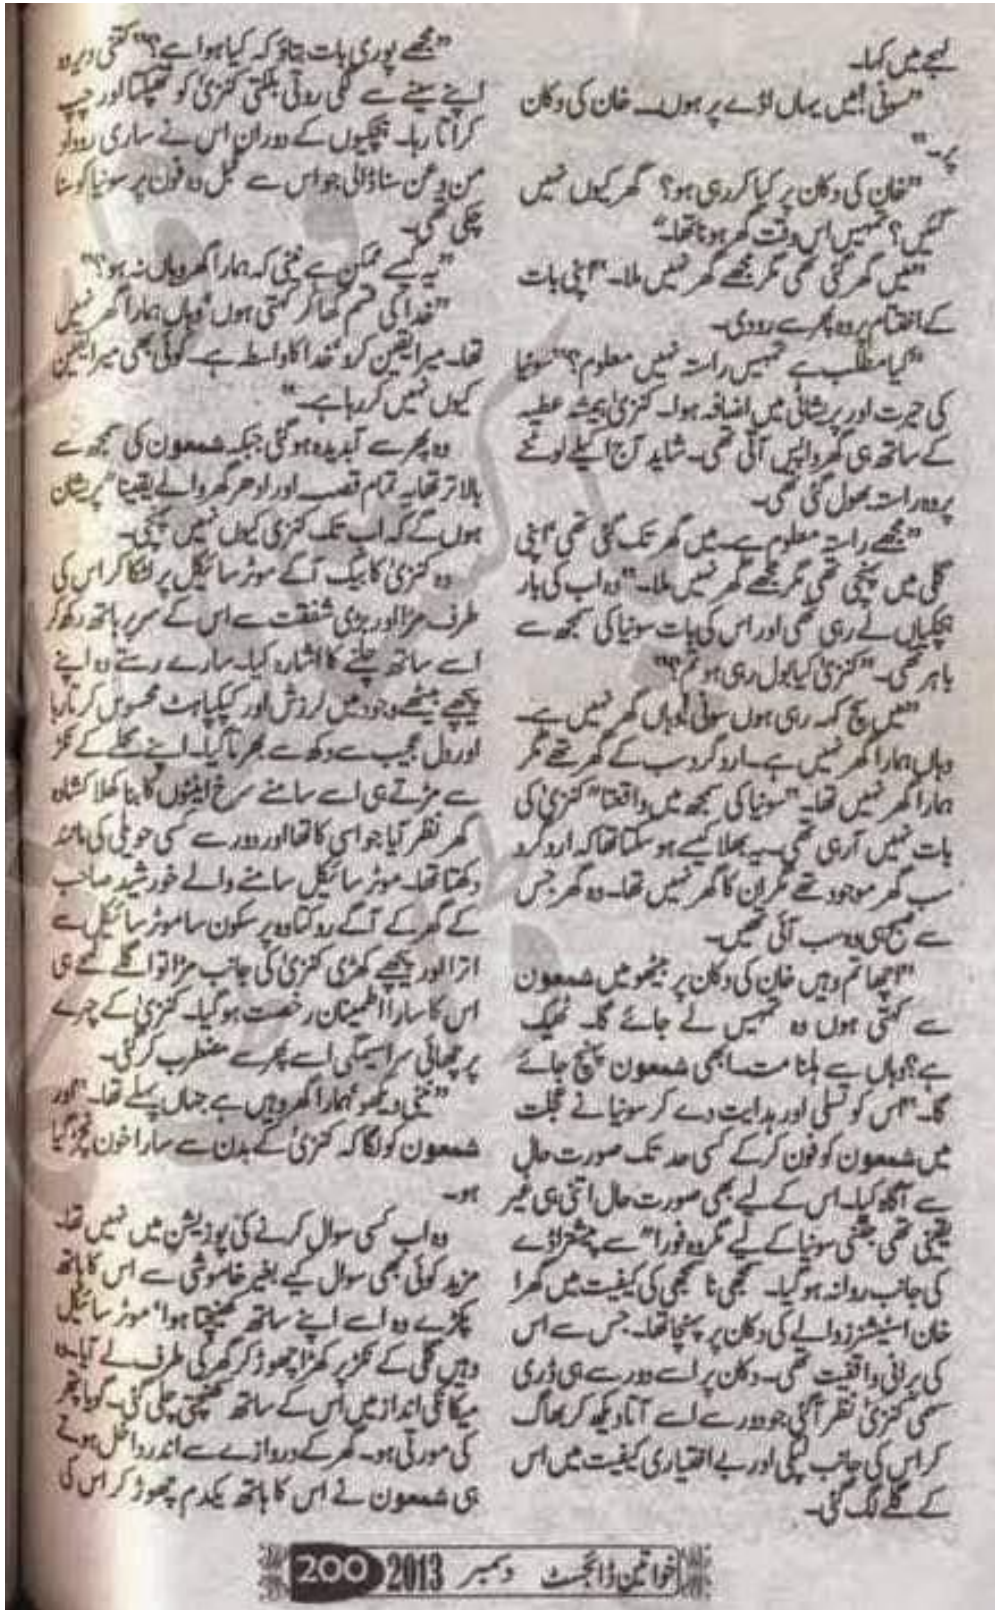 لہجے میں کہا۔
"سونی! میں یہاں اڈے پر ہوں۔ خان کی دکان
پر۔"
"خان کی دکان پر کیا کر رہی ہو؟ گھر کیوں نہیں
گئیں؟ تمہیں اس وقت گھر ہونا تھا۔"
"میں گھر گئی تھی مگر مجھے گھر نہیں ملا۔" اپنی بات
کے اختتام پر وہ پھر سے رو دی۔
"کیا مطلب ہے تمہیں راستہ نہیں معلوم؟" سونیا
کی حیرت اور پریشانی میں اضافہ ہوا۔ کنزیٰ ہمیشہ عطیہ
کے ساتھ ہی گھر واپس آتی تھی۔ شاید آج اکیلے لوٹنے
پر وہ راستہ بھول گئی تھی۔
"مجھے راستہ معلوم ہے۔ میں گھر تک گئی تھی اپنی
گلی میں پہنچی تھی مگر مجھے گھر نہیں ملا۔" وہ اب کی بار
ہچکیاں لے رہی تھی اور اس کی بات سونیا کی سمجھ سے
باہر تھی۔ "کنزیٰ کیا بول رہی ہو تم؟"
"میں سچ کہہ رہی ہوں سونی! وہاں گھر نہیں ہے۔
وہاں ہمارا گھر نہیں ہے۔ ارد گرد سب کے گھر تھے مگر
ہمارا گھر نہیں تھا۔" سونیا کی سمجھ میں واقعتا" کنزیٰ کی
بات نہیں آ رہی تھی۔ یہ بھلا کیسے ہو سکتا تھا کہ ارد گرد
سب گھر موجود تھے مگر ان کا گھر نہیں تھا۔ وہ گھر جس
سے صبح ہی وہ سب آئی تھیں۔
"اچھا تم وہیں خان کی دکان پر بیٹھو میں شمعون
سے کہتی ہوں وہ تمہیں لے جائے گا۔ ٹھیک
ہے؟ وہاں سے ہلنا مت۔ ابھی شمعون پہنچ جائے
گا۔" اس کو تسلی اور ہدایت دے کر سونیا نے عجلت
میں شمعون کو فون کر کے کسی حد تک صورت حال
سے آگاہ کیا۔ اس کے لیے بھی صورت حال اتنی ہی غیر
یقینی تھی جتنی سونیا کے لیے مگر وہ فورا" سے پیشتر اڈے
کی جانب روانہ ہو گیا۔ سمجھی نا سمجھی کی کیفیت میں گھرا
خان اسٹیشنرز والے کی دکان پر پہنچا تھا۔ جس سے اس
کی پرانی واقفیت تھی۔ دکان پر اسے دور سے ہی ڈری
سہمی کنزیٰ نظر آ گئی جو دور سے اسے آتا دیکھ کر بھاگ
کر اس کی جانب لپکی اور بے اختیاری کیفیت میں اس
کے گلے لگ گئی۔
"مجھے پوری بات بتاؤ کہ کیا ہوا ہے؟" کتنی دیر وہ
اپنے سینے سے لگی روتی بلکتی کنزیٰ کو تھپکتا اور چپ
کراتا رہا۔ ہچکیوں کے دوران اس نے ساری روداد
من و عن سنا ڈالی جو اس سے قبل وہ فون پر سونیا کو سنا
چکی تھی۔
"یہ کیسے ممکن ہے ننی کہ ہمارا گھر وہاں نہ ہو؟"
"خدا کی قسم کھا کر کہتی ہوں' وہاں ہمارا گھر نہیں
تھا۔ میرا یقین کرو' خدا کا واسطہ ہے۔ کوئی بھی میرا یقین
کیوں نہیں کر رہا ہے۔"
وہ پھر سے آبدیدہ ہو گئی جبکہ شمعون کی سمجھ سے
بالاتر تھا یہ تمام قصہ اور ادھر گھر والے یقینا" پریشان
ہوں گے کہ اب تک کنزیٰ کیوں نہیں پہنچی۔
وہ کنزیٰ کا بیگ آگے موٹر سائیکل پر لٹکا کر اس کی
طرف مڑا اور بڑی شفقت سے اس کے سر پر ہاتھ رکھ کر
اسے ساتھ چلنے کا اشارہ کیا۔ سارے رستے وہ اپنے
پیچھے بیٹھے وجود میں لرزش اور کپکپاہٹ محسوس کرتا رہا
اور دل عجیب سے دکھ سے بھر تا گیا۔ اپنے محلے کے نکڑ
سے مڑتے ہی اسے سامنے سرخ اینٹوں کا بنا کھلا کشادہ
گھر نظر آیا جو اسی کا تھا اور دور سے کسی حویلی کی مانند
دکھتا تھا۔ موٹر سائیکل سامنے والے خورشید صاحب
کے گھر کے آگے روکتا وہ پرسکون سا موٹر سائیکل سے
اترا اور پیچھے کھڑی کنزیٰ کی جانب مڑا تو اگلے لمحے ہی
اس کا سارا اطمینان رخصت ہو گیا۔ کنزیٰ کے چہرے
پر چھائی سراسیمگی اسے پھر سے مضطرب کر گئی۔
"ننی دیکھو' ہمارا گھر وہیں ہے جہاں پہلے تھا۔" اور
شمعون کو لگا کہ کنزیٰ کے بدن سے سارا خون نچڑ گیا
ہو۔
وہ اب کسی سوال کرنے کی پوزیشن میں نہیں تھا۔
مزید کوئی بھی سوال کیے بغیر خاموشی سے اس کا ہاتھ
پکڑے وہ اسے اپنے ساتھ کھینچتا ہوا' موٹر سائیکل
وہیں گلی کے نکڑ پر کھڑا چھوڑ کر گھر کی طرف لے آیا۔ وہ
میکانکی انداز میں اس کے ساتھ کھنچتی چلی گئی۔ گویا پتھر
کی مورتی ہو۔ گھر کے دروازے سے اندر داخل ہوتے
ہی شمعون نے اس کا ہاتھ یکدم چھوڑ کر اس کی
خواتین ڈائجسٹ دسمبر 2013 200